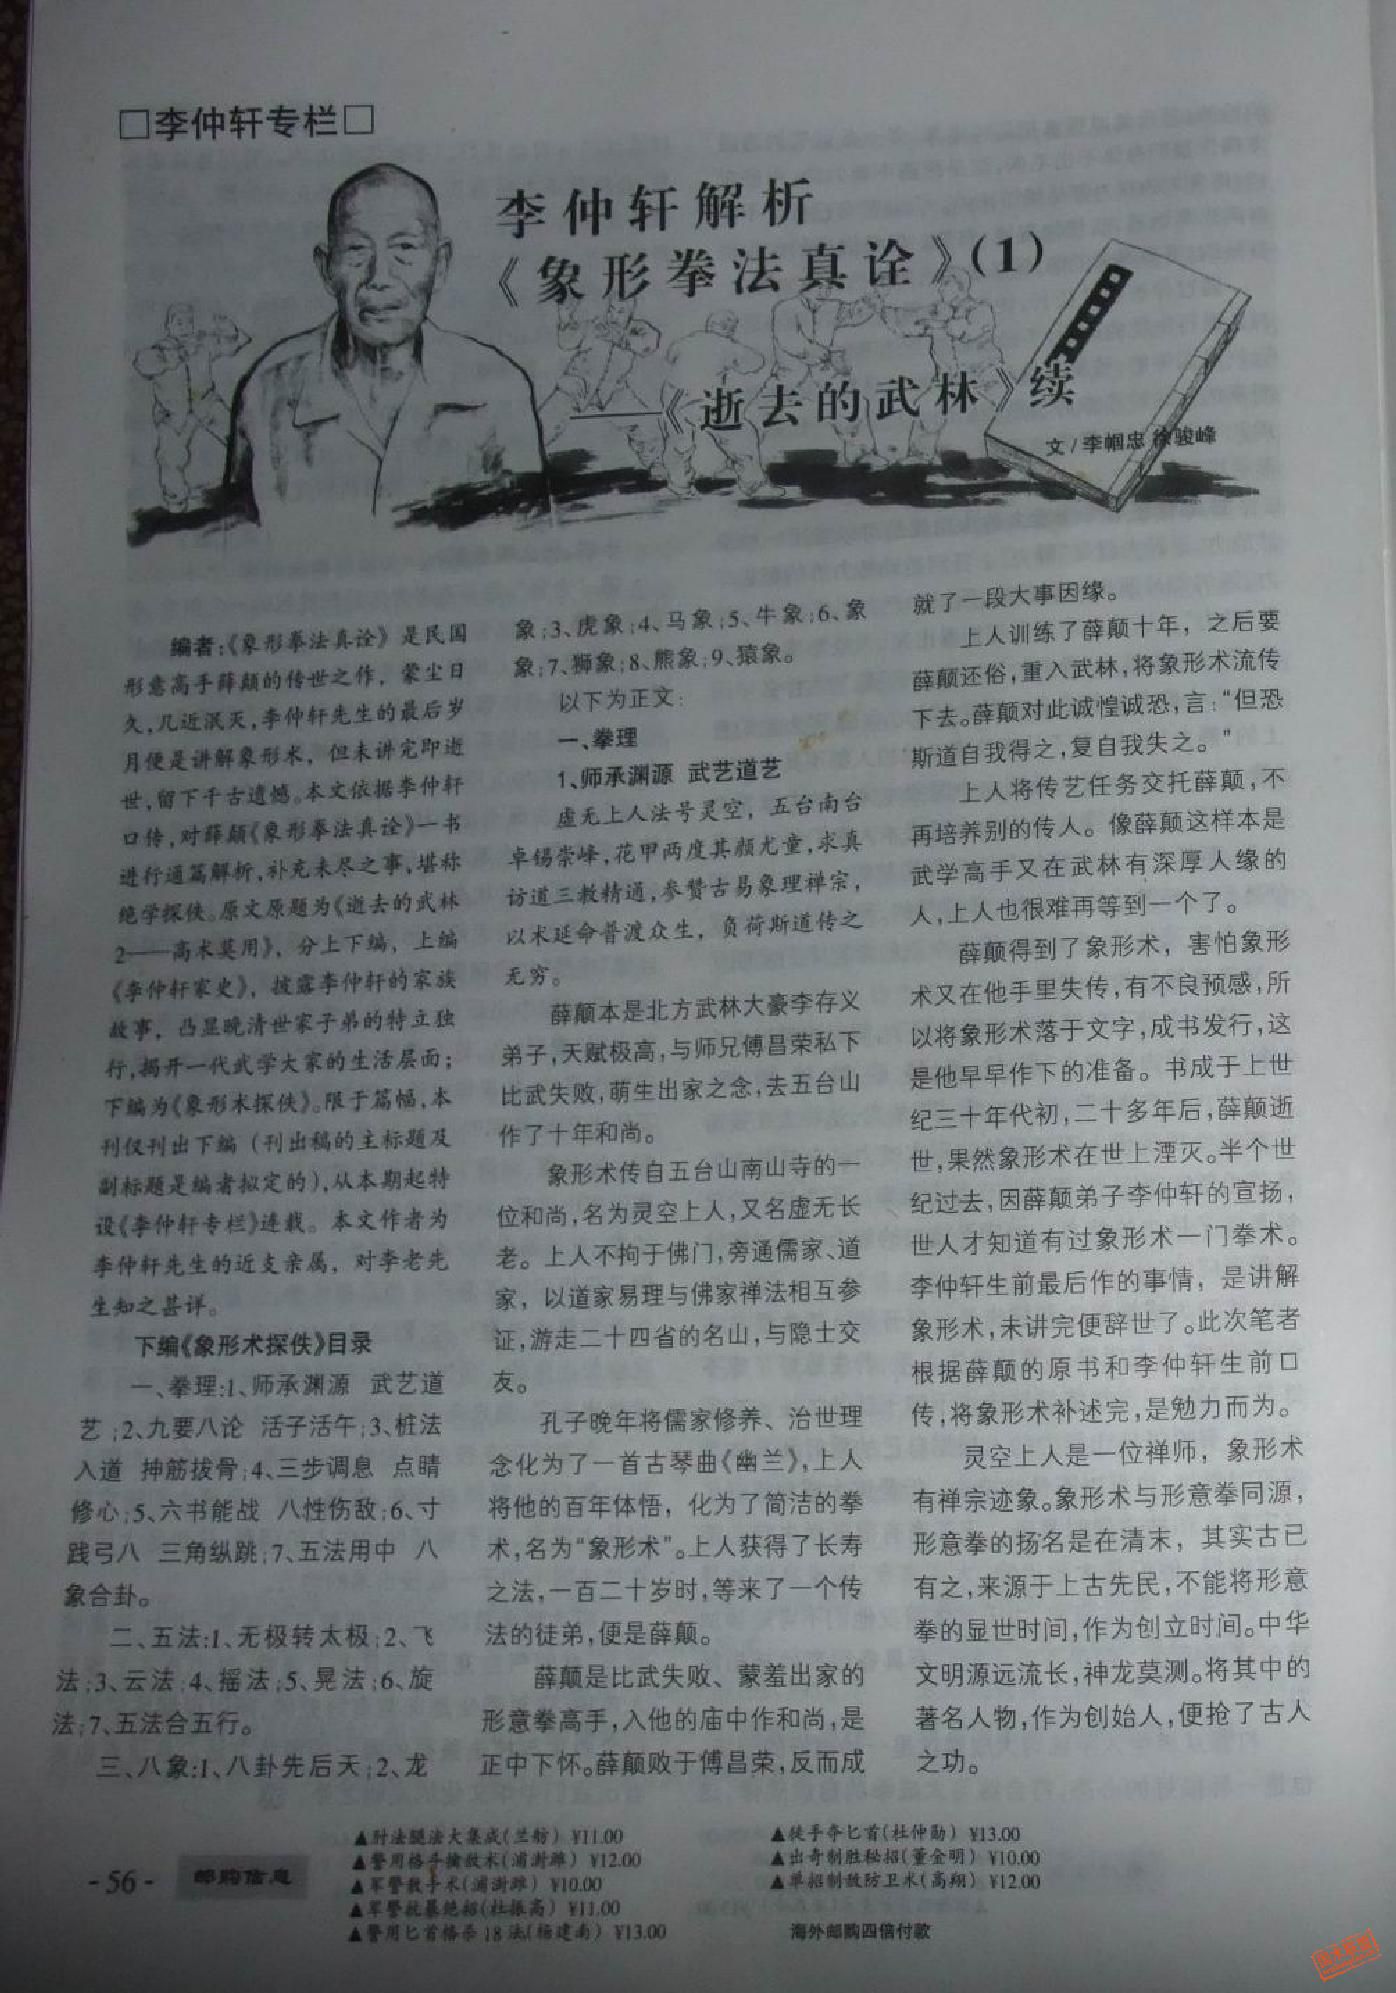 □李仲轩专栏□
李仲轩解析
《象形拳法真诠》(1)
——《逝去的武林》续
文/李帼忠 徐骏峰
编者:《象形拳法真诠》是民国
形意高手薛颠的传世之作，蒙尘日
久,几近泯灭,李仲轩先生的最后岁
月便是讲解象形术，但未讲完即逝
世,留下千古遗憾。本文依据李仲轩
口传,对薛颠《象形拳法真诠》一书
进行通篇解析,补充未尽之事,堪称
绝学探佚。原文原题为《逝去的武林
2——高术莫用》，分上下编，上编
《李仲轩家史》，披露李仲轩的家族
故事，凸显晚清世家子弟的特立独
行,揭开一代武学大家的生活层面;
下编为《象形术探佚》。限于篇幅,本
刊仅刊出下编（刊出稿的主标题及
副标题是编者拟定的),从本期起特
设《李仲轩专栏》连载。本文作者为
李仲轩先生的近支亲属，对李老先
生知之甚详。
下编《象形术探佚》目录
一、拳理:1、师承渊源 武艺道
艺;2、九要八论 活子活午;3、桩法
入道 抻筋拔骨;4、三步调息 点睛
修心;5、六书能战 八性伤敌;6、寸
践弓八 三角纵跳;7、五法用中 八
象合卦。
二、五法:1、无极转太极;2、飞
法;3、云法;4、摇法;5、晃法;6、旋
法;7、五法合五行。
三、八象:1、八卦先后天;2、龙
象;3、虎象;4、马象;5、牛象;6、象
象;7、狮象;8、熊象;9、猿象。
以下为正文:
一、拳理
1、师承渊源 武艺道艺
虚无上人法号灵空，五台南台
卓锡崇峰,花甲两度其颜尤童,求真
访道三教精通,参赞古易象理禅宗,
以术延命普渡众生，负荷斯道传之
无穷。
薛颠本是北方武林大豪李存义
弟子,天赋极高,与师兄傅昌荣私下
比武失败,萌生出家之念,去五台山
作了十年和尚。
象形术传自五台山南山寺的一
位和尚,名为灵空上人,又名虚无长
老。上人不拘于佛门,旁通儒家、道
家，以道家易理与佛家禅法相互参
证,游走二十四省的名山,与隐士交
友。
孔子晚年将儒家修养、治世理
念化为了一首古琴曲《幽兰》,上人
将他的百年体悟，化为了简洁的拳
术,名为“象形术”。上人获得了长寿
之法,一百二十岁时,等来了一个传
法的徒弟,便是薛颠。
薛颠是比武失败、蒙羞出家的
形意拳高手,入他的庙中作和尚,是
正中下怀。薛颠败于傅昌荣,反而成
就了一段大事因缘。
上人训练了薛颠十年，之后要
薛颠还俗,重入武林,将象形术流传
下去。薛颠对此诚惶诚恐,言:“但恐
斯道自我得之,复自我失之。”
上人将传艺任务交托薛颠,不
再培养别的传人。像薛颠这样本是
武学高手又在武林有深厚人缘的
人,上人也很难再等到一个了。
薛颠得到了象形术，害怕象形
术又在他手里失传,有不良预感,所
以将象形术落于文字,成书发行,这
是他早早作下的准备。书成于上世
纪三十年代初,二十多年后,薛颠逝
世,果然象形术在世上湮灭。半个世
纪过去,因薛颠弟子李仲轩的宣扬,
世人才知道有过象形术一门拳术。
李仲轩生前最后作的事情，是讲解
象形术,未讲完便辞世了。此次笔者
根据薛颠的原书和李仲轩生前口
传,将象形术补述完,是勉力而为。
灵空上人是一位禅师，象形术
有禅宗迹象。象形术与形意拳同源,
形意拳的扬名是在清末，其实古已
有之,来源于上古先民,不能将形意
拳的显世时间,作为创立时间。中华
文明源远流长,神龙莫测。将其中的
著名人物,作为创始人,便抢了古人
之功。
- 56 -
邮购信息
▲肘法腿法大集成(兰舫) ¥11.00
▲警用格斗擒敌术(浦澍雎) ¥12.00
▲军警散手术(浦澍雎) ¥10.00
▲军警抗暴绝招(杜振高) ¥11.00
▲警用匕首格杀18法(杨建南) ¥13.00
▲徒手夺匕首(杜仲勋) ¥13.00
▲出奇制胜秘招(董金明) ¥10.00
▲单招制敌防卫术(高翔) ¥12.00
海外邮购四倍付款